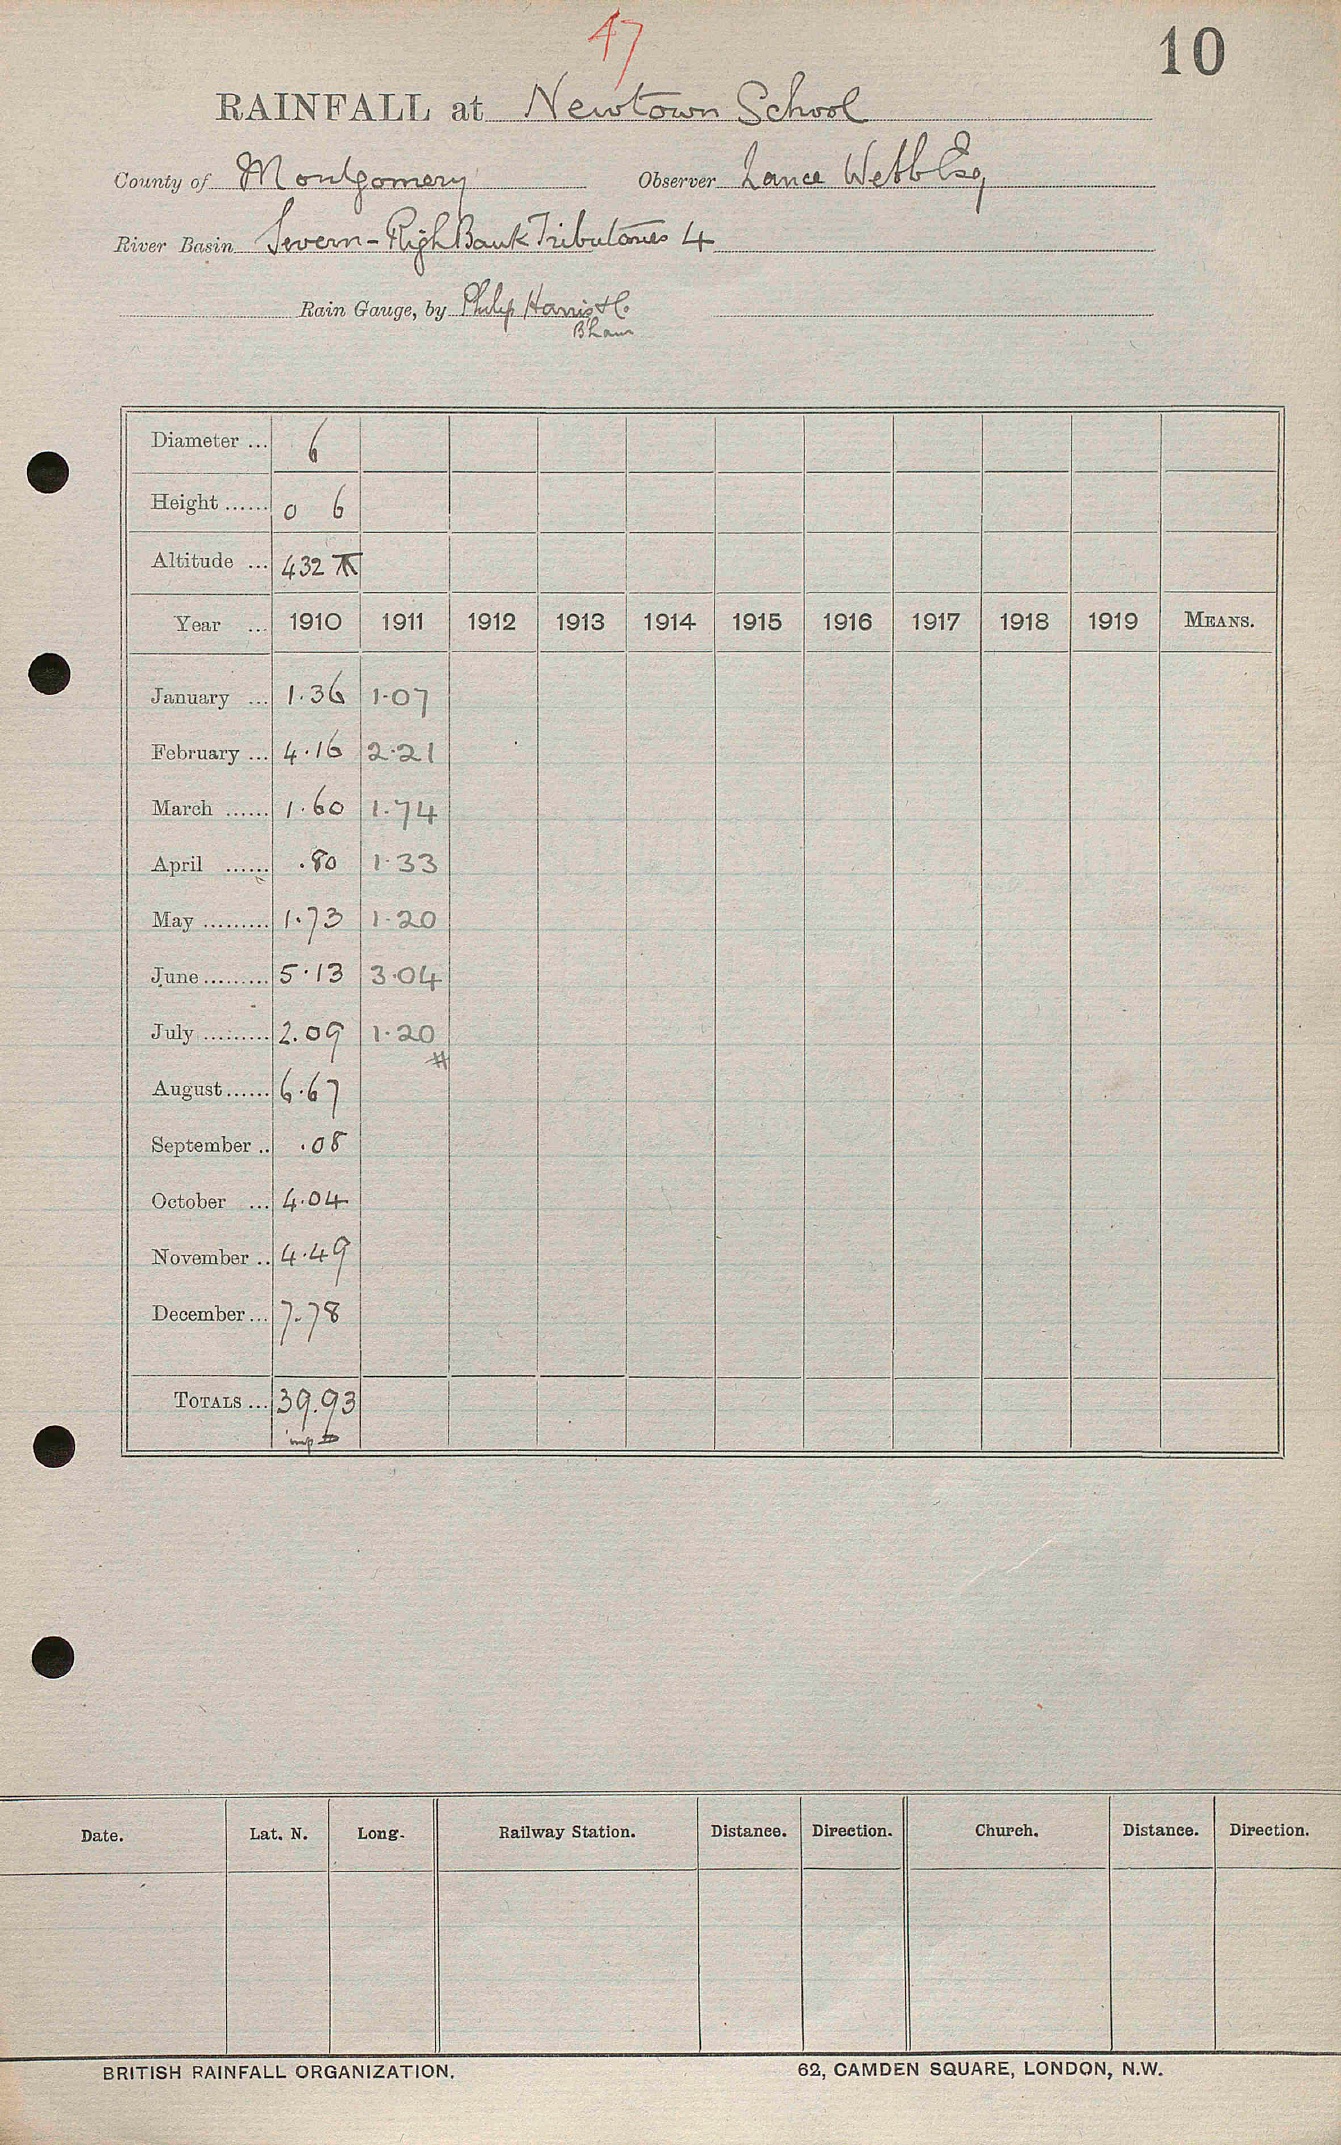 47
10
RAINFALL at Newtown School
County of Montgomery Observer Lance Webb Esq
River Basin Severn - Righ Bank Tributaries 4
Rain Gauge, by Philip Harris & Co.
B'ham
Diameter ... 6
Height ...... 0 6
Altitude ... 432
Year ... 1910 1911 1912 1913 1914 1915 1916 1917 1918 1919 MEANS.
January ... 1.36 1.07
February ... 4.16 2.21
March ...... 1.60 1.74
April ...... .80 1.33
May ......... 1.73 1.20
June ......... 5.13 3.04
July ......... 2.09 1.20
#
August ...... 6.67
September .. .08
October ... 4.04
November .. 4.49
December ... 7.78
TOTALS ... 39.93
Date. Lat. N. Long. Railway Station. Distance. Direction. Church. Distance. Direction.
BRITISH RAINFALL ORGANIZATION. 62, CAMDEN SQUARE, LONDON, N.W.